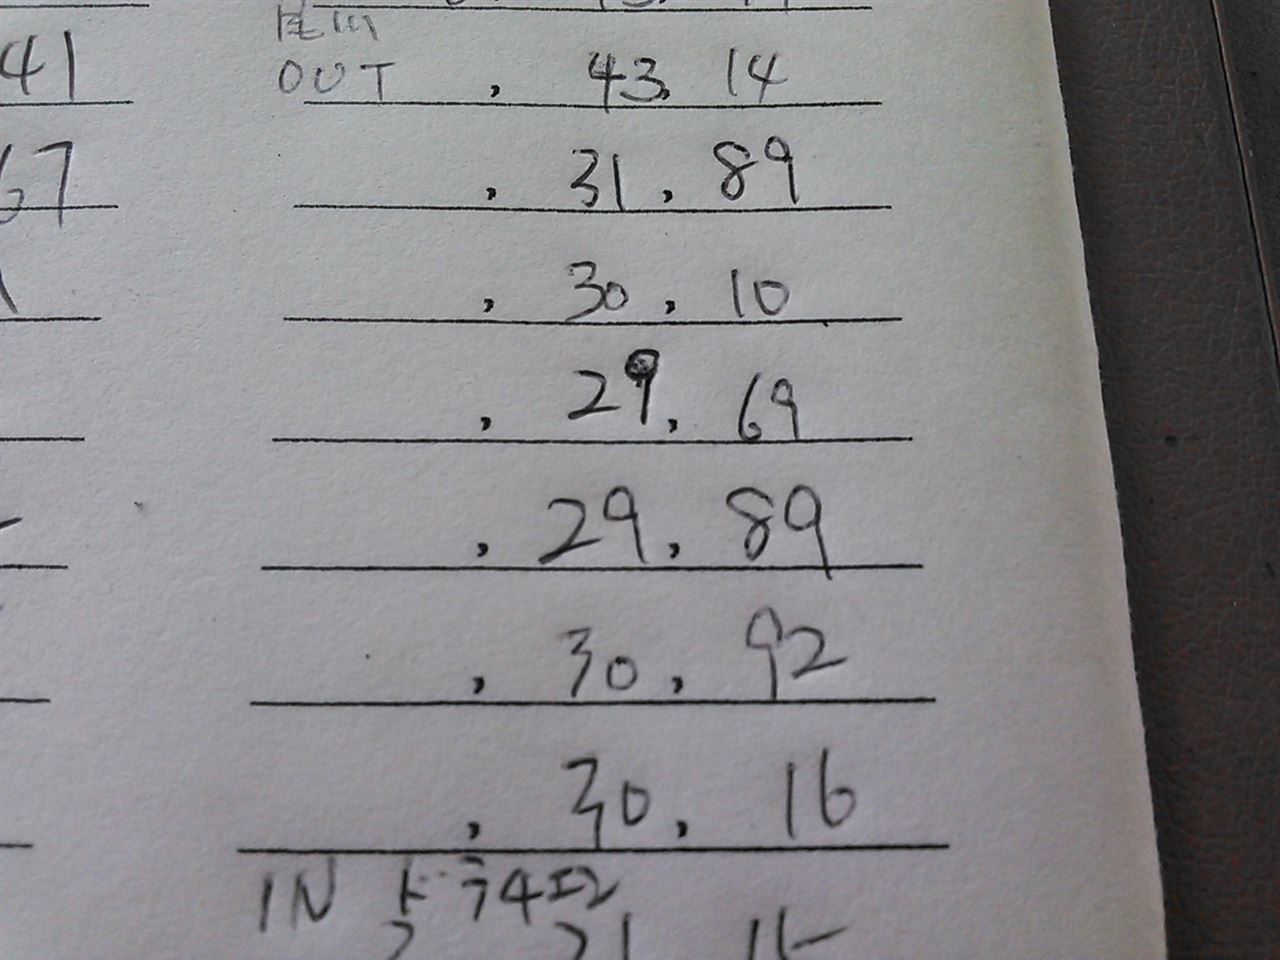 41
OUT , 43, 14
67
, 31, 89
, 30, 10
, 29, 69
, 29, 89
, 30, 92
, 30, 16
IN